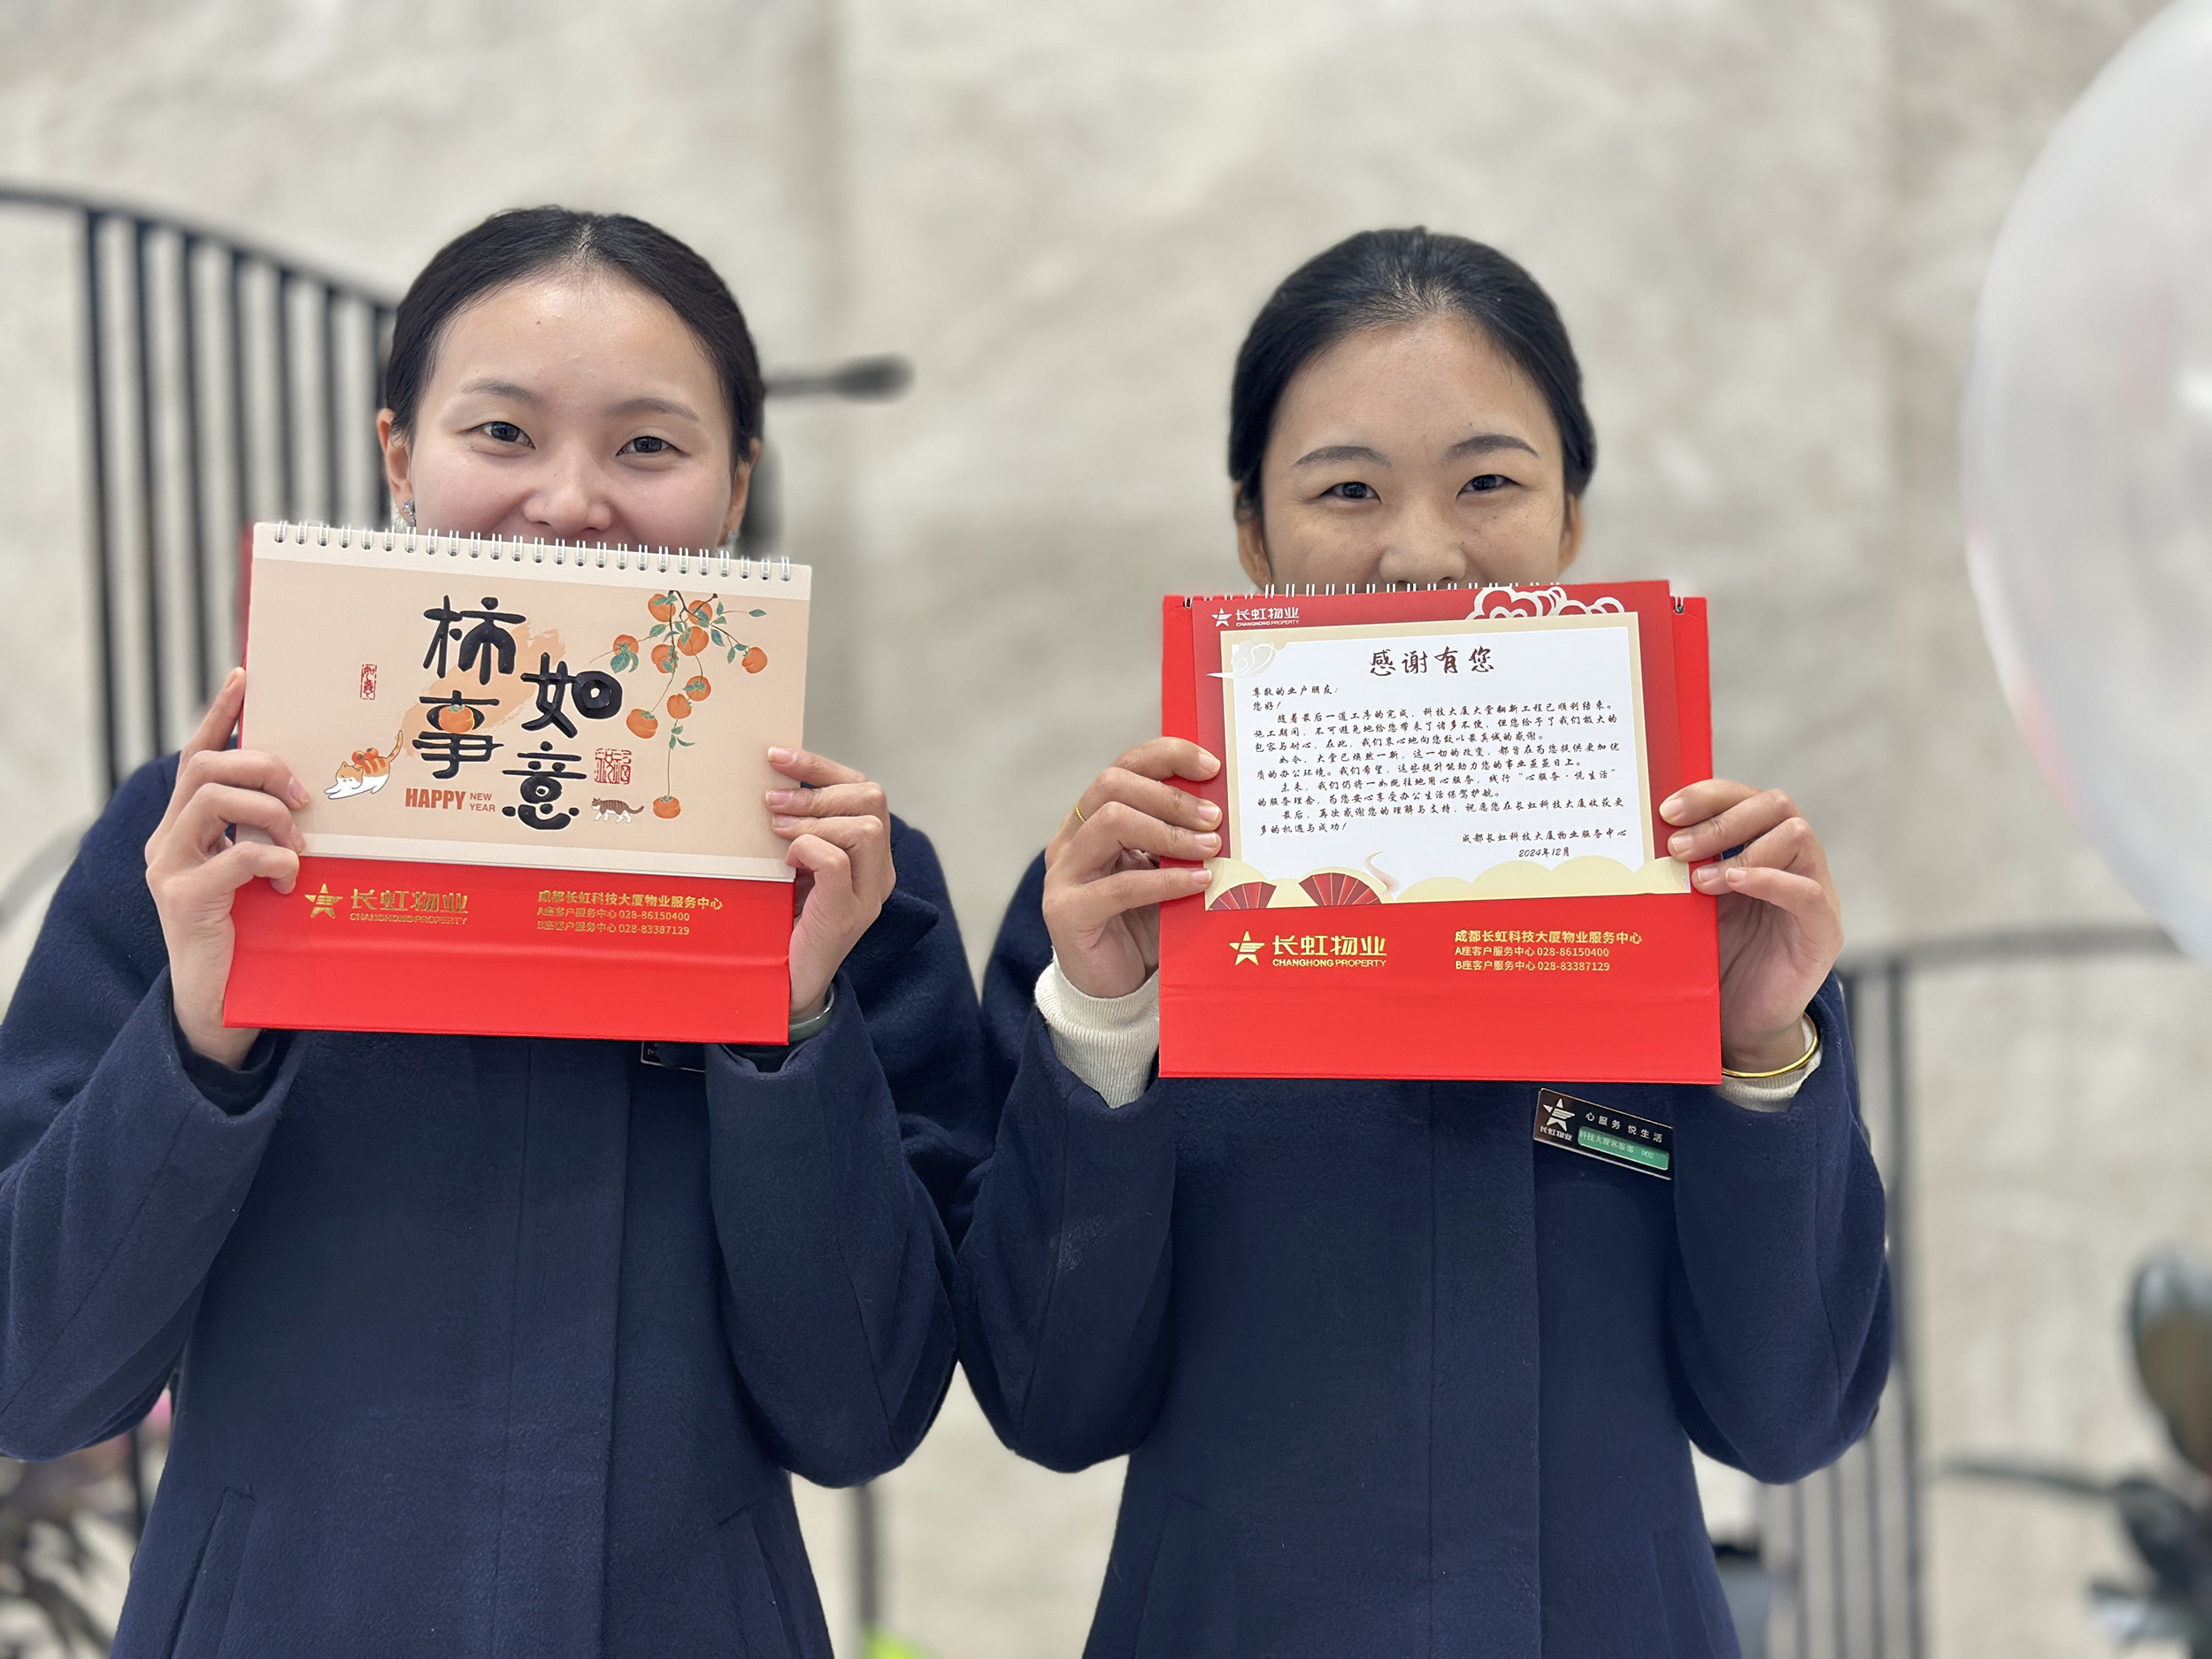 柿事
如意
HAPPY NEW YEAR
长虹物业
CHANGHONG PROPERTY
成都长虹科技大厦物业服务中心
A座客户服务中心 028-86150400
B座客户服务中心 028-83387129
长虹物业
CHANGHONG PROPERTY
感谢有您
尊敬的业户朋友：
您好！
随着最后一道工序的完成，科技大厦大堂翻新工程已顺利结束。
施工期间，不可避免地给您带来了诸多不便，但您给予了我们极大的
包容与耐心，在此，我们衷心地向您致以最真诚的感谢。
如今，大堂已焕然一新，这一切的改变，都旨在为您提供更加优
质的办公环境。我们希望，这些提升能助力您的事业蒸蒸日上。
未来，我们仍将一如既往地用心服务，践行“心服务·悦生活”
的服务理念，为您安心享受办公生活保驾护航。
最后，再次感谢您的理解与支持，祝愿您在长虹科技大厦收获更
多的机遇与成功！
成都长虹科技大厦物业服务中心
2024年12月
长虹物业
CHANGHONG PROPERTY
成都长虹科技大厦物业服务中心
A座客户服务中心 028-86150400
B座客户服务中心 028-83387129
心服务 悦生活
长虹物业
科技大厦客服部 002